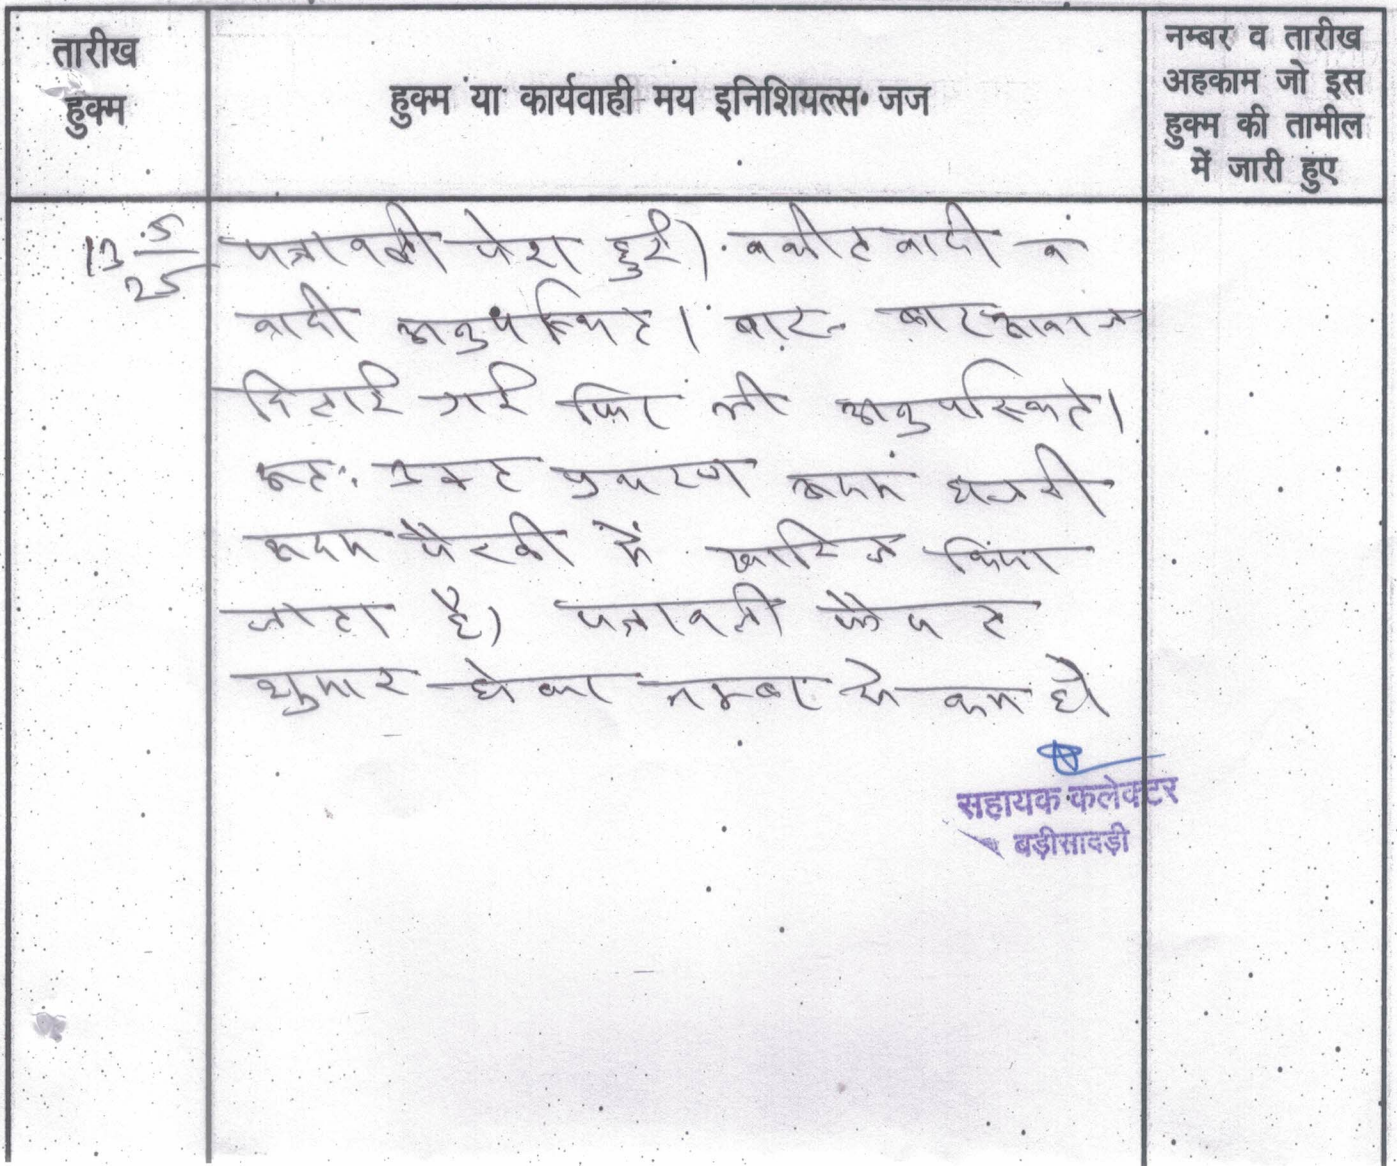 तारीख
हुक्म
हुक्म या कार्यवाही मय इनिशियल्स जज
नम्बर व तारीख
अहकाम जो इस
हुक्म की तामील
में जारी हुए
13 5/25
पत्रावली पेश हुई। वकील वादी व
वादी अनुपस्थित। बार-बार आवाज
दिलाई गई फिर भी अनुपस्थित।
अतः उक्त प्रकरण अदम हाजरी
अदम पैरवी में खारिज किया
जाता है। पत्रावली फैसल
शुमार होकर नम्बर से कम हो
सहायक कलेक्टर
बड़ीसादड़ी